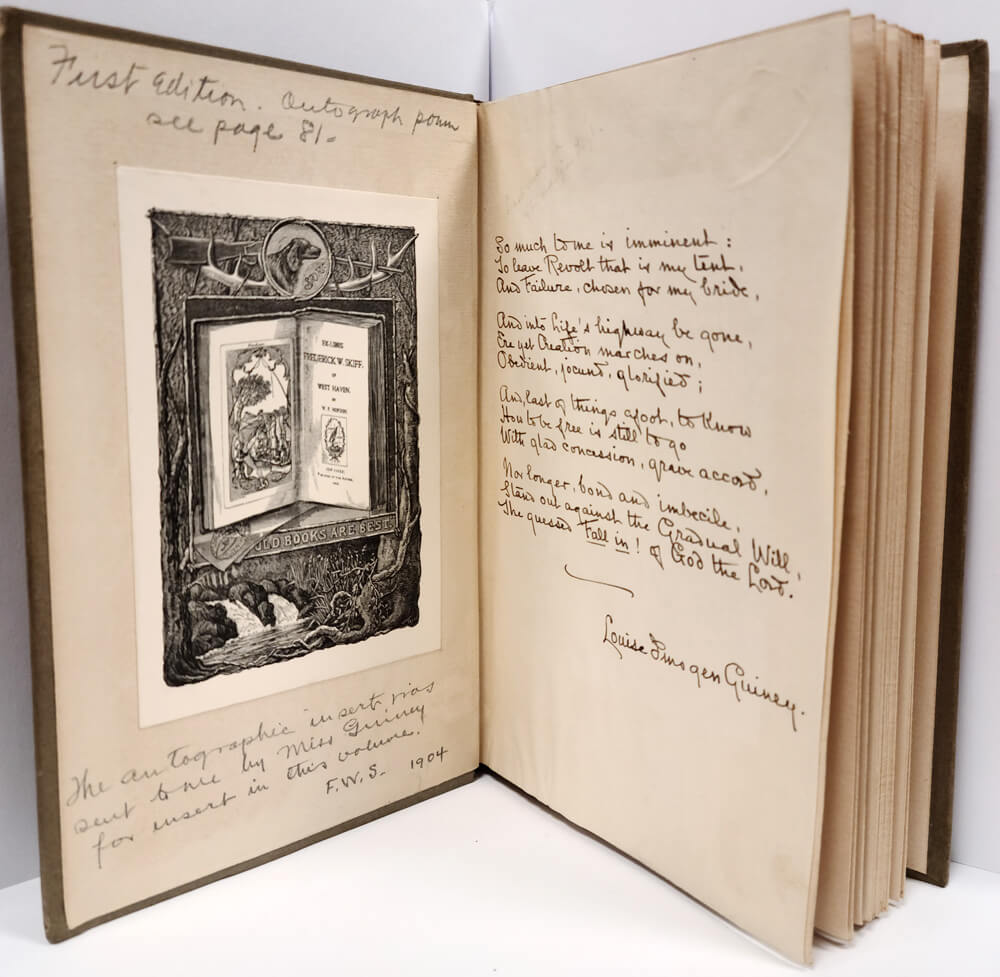 First Edition. Autograph poem
see page 81-
EX-LIBRIS
FREDERICK W. SKIFF.
OF
WEST HAVEN.
BY
W. F. HOPSON
OLD BOOKS ARE BEST.
The autographic insert was
sent to me by Miss Guiney
for insert in this volume.
F.W.S- 1904
So much to me is imminent:
To leave Revolt that is my tent,
And Failure, chosen for my bride,
And into Life's highway be gone,
Ere yet Creation marches on,
Obedient, jocund, glorified;
And, last of things afoot, to know
How to be free is still to go
With glad concession, grave accord,
Nor longer, bond and imbecile,
Stand out against the Gradual Will,
The guessed Fall in! of God the Lord.
Louise Imogen Guiney.